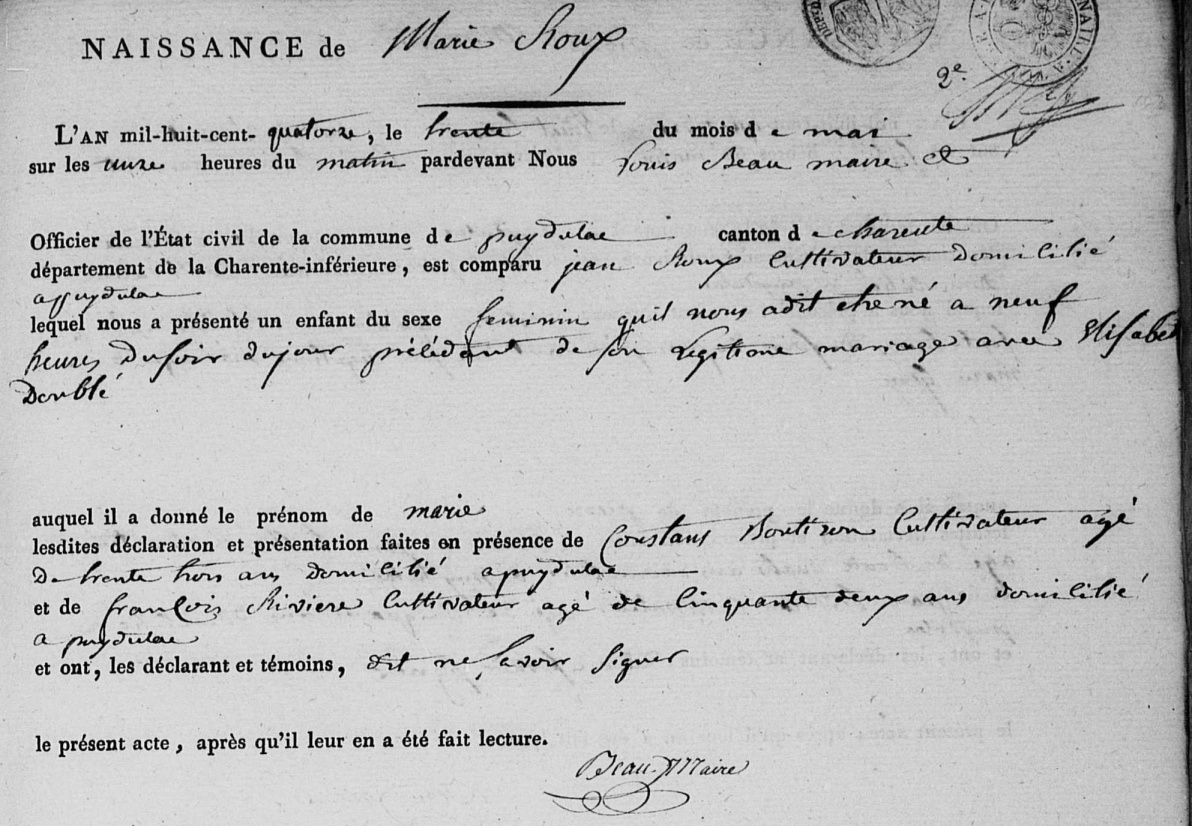 NAISSANCE de Marie Roux
2e
L'AN mil-huit-cent- quatorze, le trente du mois d e mai
sur les onze heures du matin pardevant Nous Louis Beau maire et
Officier de l'État civil de la commune de puydulac canton d e charente
département de la Charente-inférieure, est comparu jean Roux Cultivateur domicilié
a puydulac
lequel nous a présenté un enfant du sexe feminin qu'il nous a dit etre né a neuf
heures du soir du jour précédant de son Legitime mariage avec Elisabet
Doublé
auquel il a donné le prénom de marie
lesdites déclaration et présentation faites en présence de Constans Boutiron Cultivateur agé
De trente trois ans domicilié a puydulac
et de françois Riviere Cultivateur agé de Cinquante deux ans domicilié
a puydulac
et ont, les déclarant et témoins, dit ne savoir Signer
le présent acte, après qu'il leur en a été fait lecture.
Beau Maire